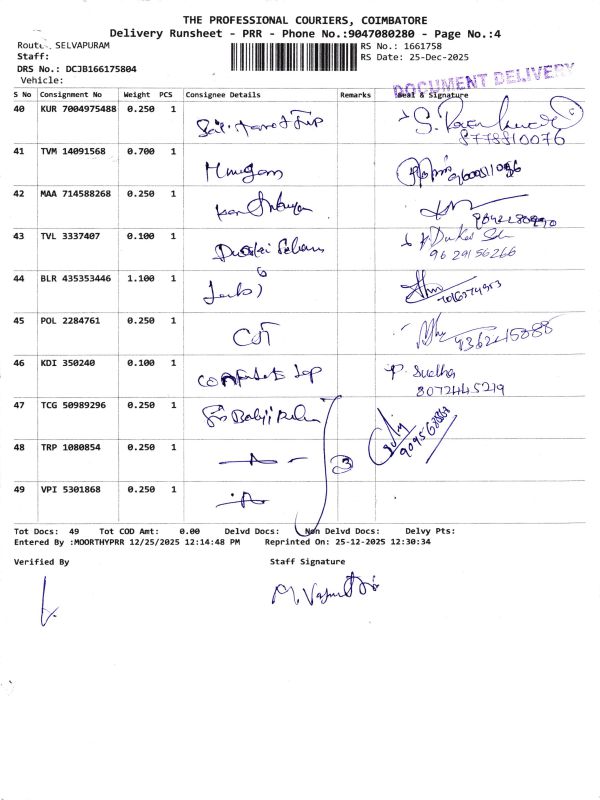 THE PROFESSIONAL COURIERS, COIMBATORE
Delivery Runsheet - PRR - Phone No.:9047080280 - Page No.:4
Route: SELVAPURAM
RS No.: 1661758
Staff:
RS Date: 25-Dec-2025
DRS No.: DCJB166175804
Vehicle:
DOCUMENT DELIVERY
S No Consignment No Weight PCS Consignee Details Remarks Seal & Signature
40 KUR 7004975488 0.250 1
8778810076
41 TVM 14091568 0.700 1 Murugan
42 MAA 714588268 0.250 1
43 TVL 3337407 0.100 1
9629156266
44 BLR 435353446 1.100 1
45 POL 2284761 0.250 1
46 KDI 350240 0.100 1 P. Sudha
8072445219
47 TCG 50989296 0.250 1
48 TRP 1080854 0.250 1 3
49 VPI 5301868 0.250 1
Tot Docs: 49 Tot COD Amt: 0.00 Delvd Docs: Non Delvd Docs: Delvy Pts:
Entered By :MOORTHYPRR 12/25/2025 12:14:48 PM Reprinted On: 25-12-2025 12:30:34
Verified By Staff Signature